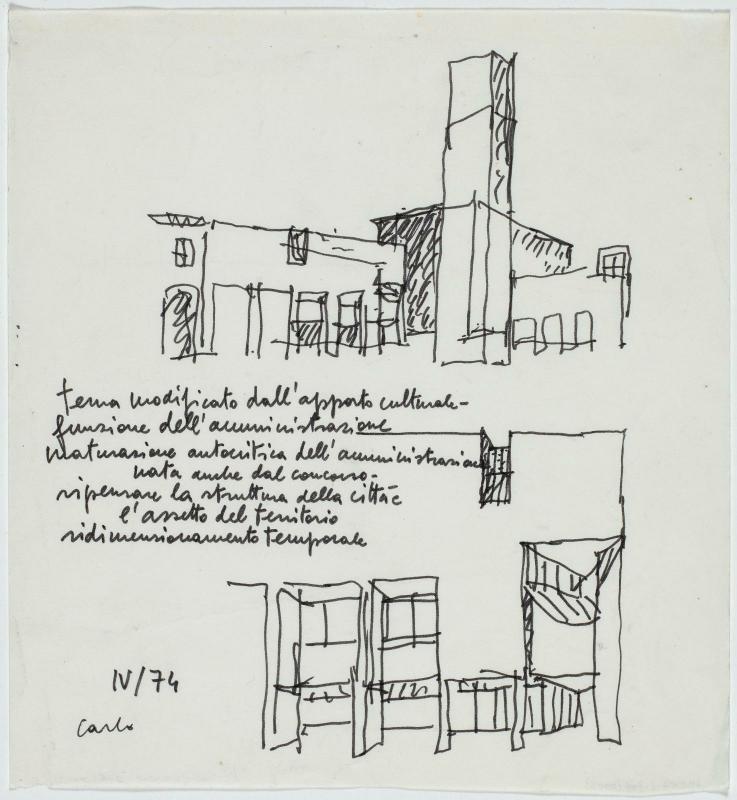 tema modificato dall'apporto culturale-
funzione dell'amministrazione
maturazione autocritica dell'amministrazione
nata anche dal concorso-
ripensare la struttura della città
l'assetto del territorio
ridimensionamento temporale
IV/74
Carlo